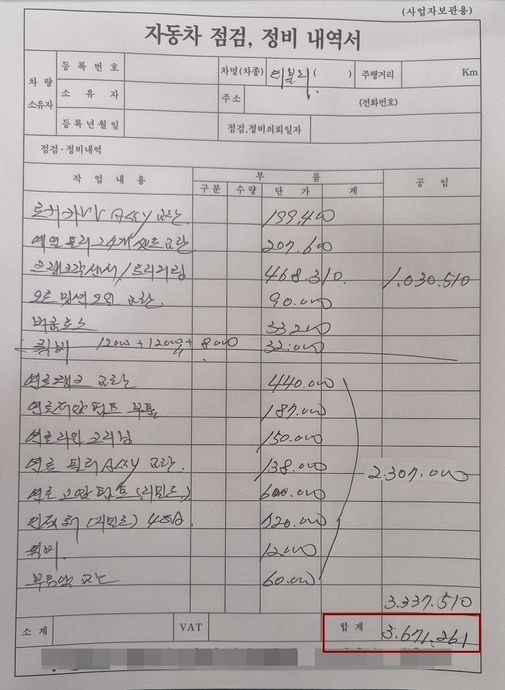 (사업자보관용)
자동차 점검, 정비 내역서
차량 소유자
등록번호 차명(차종) ( ) 주행거리 Km
소유자 주소 (전화번호)
등록년월일 점검,정비의뢰일자
점검·정비내역
작업내용 부품 공임
구분 수량 단가 계
로커카바 ASSY 교환 199,400
207.600
468.310 1.030.510
90.000
33200
퀵비 12000 + 12000 + 8000 32.000
연료탱크 교환 440.000
연료저압펌프 부품 187.000
연료라인 크리닝 150.000
연료 필터 ASSY 교환. 138.000 2.307.000
연료 고압펌프 (리빌드) 600.000
인젝터 (리빌드) 4EA 720.000
퀵비. 12.000
부동액 교환 60.000
3.337.510
소계 VAT 합계 3.671.261